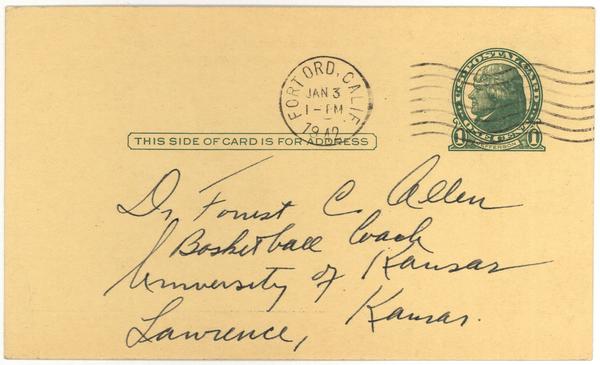 FORT ORD, CALIF.
JAN 3
1-PM
1942
U.S. POSTAL CARD
1 ONE CENT 1
JEFFERSON
THIS SIDE OF CARD IS FOR ADDRESS
Dr Forrest C. Allen
Basketball Coach
University of Kansas
Lawrence, Kansas.